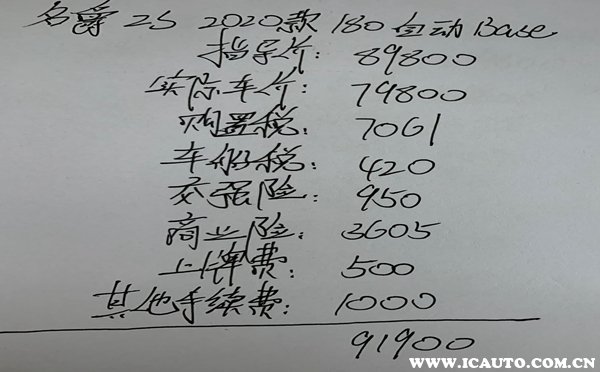 名爵ZS 2020款 180自动Base
指导价: 89800
实际车价: 79800
购置税: 7061
车船税: 420
交强险: 950
商业险: 3605
上牌费: 500
其他手续费: 1000
91900
WWW.ICAUTO.COM.CN